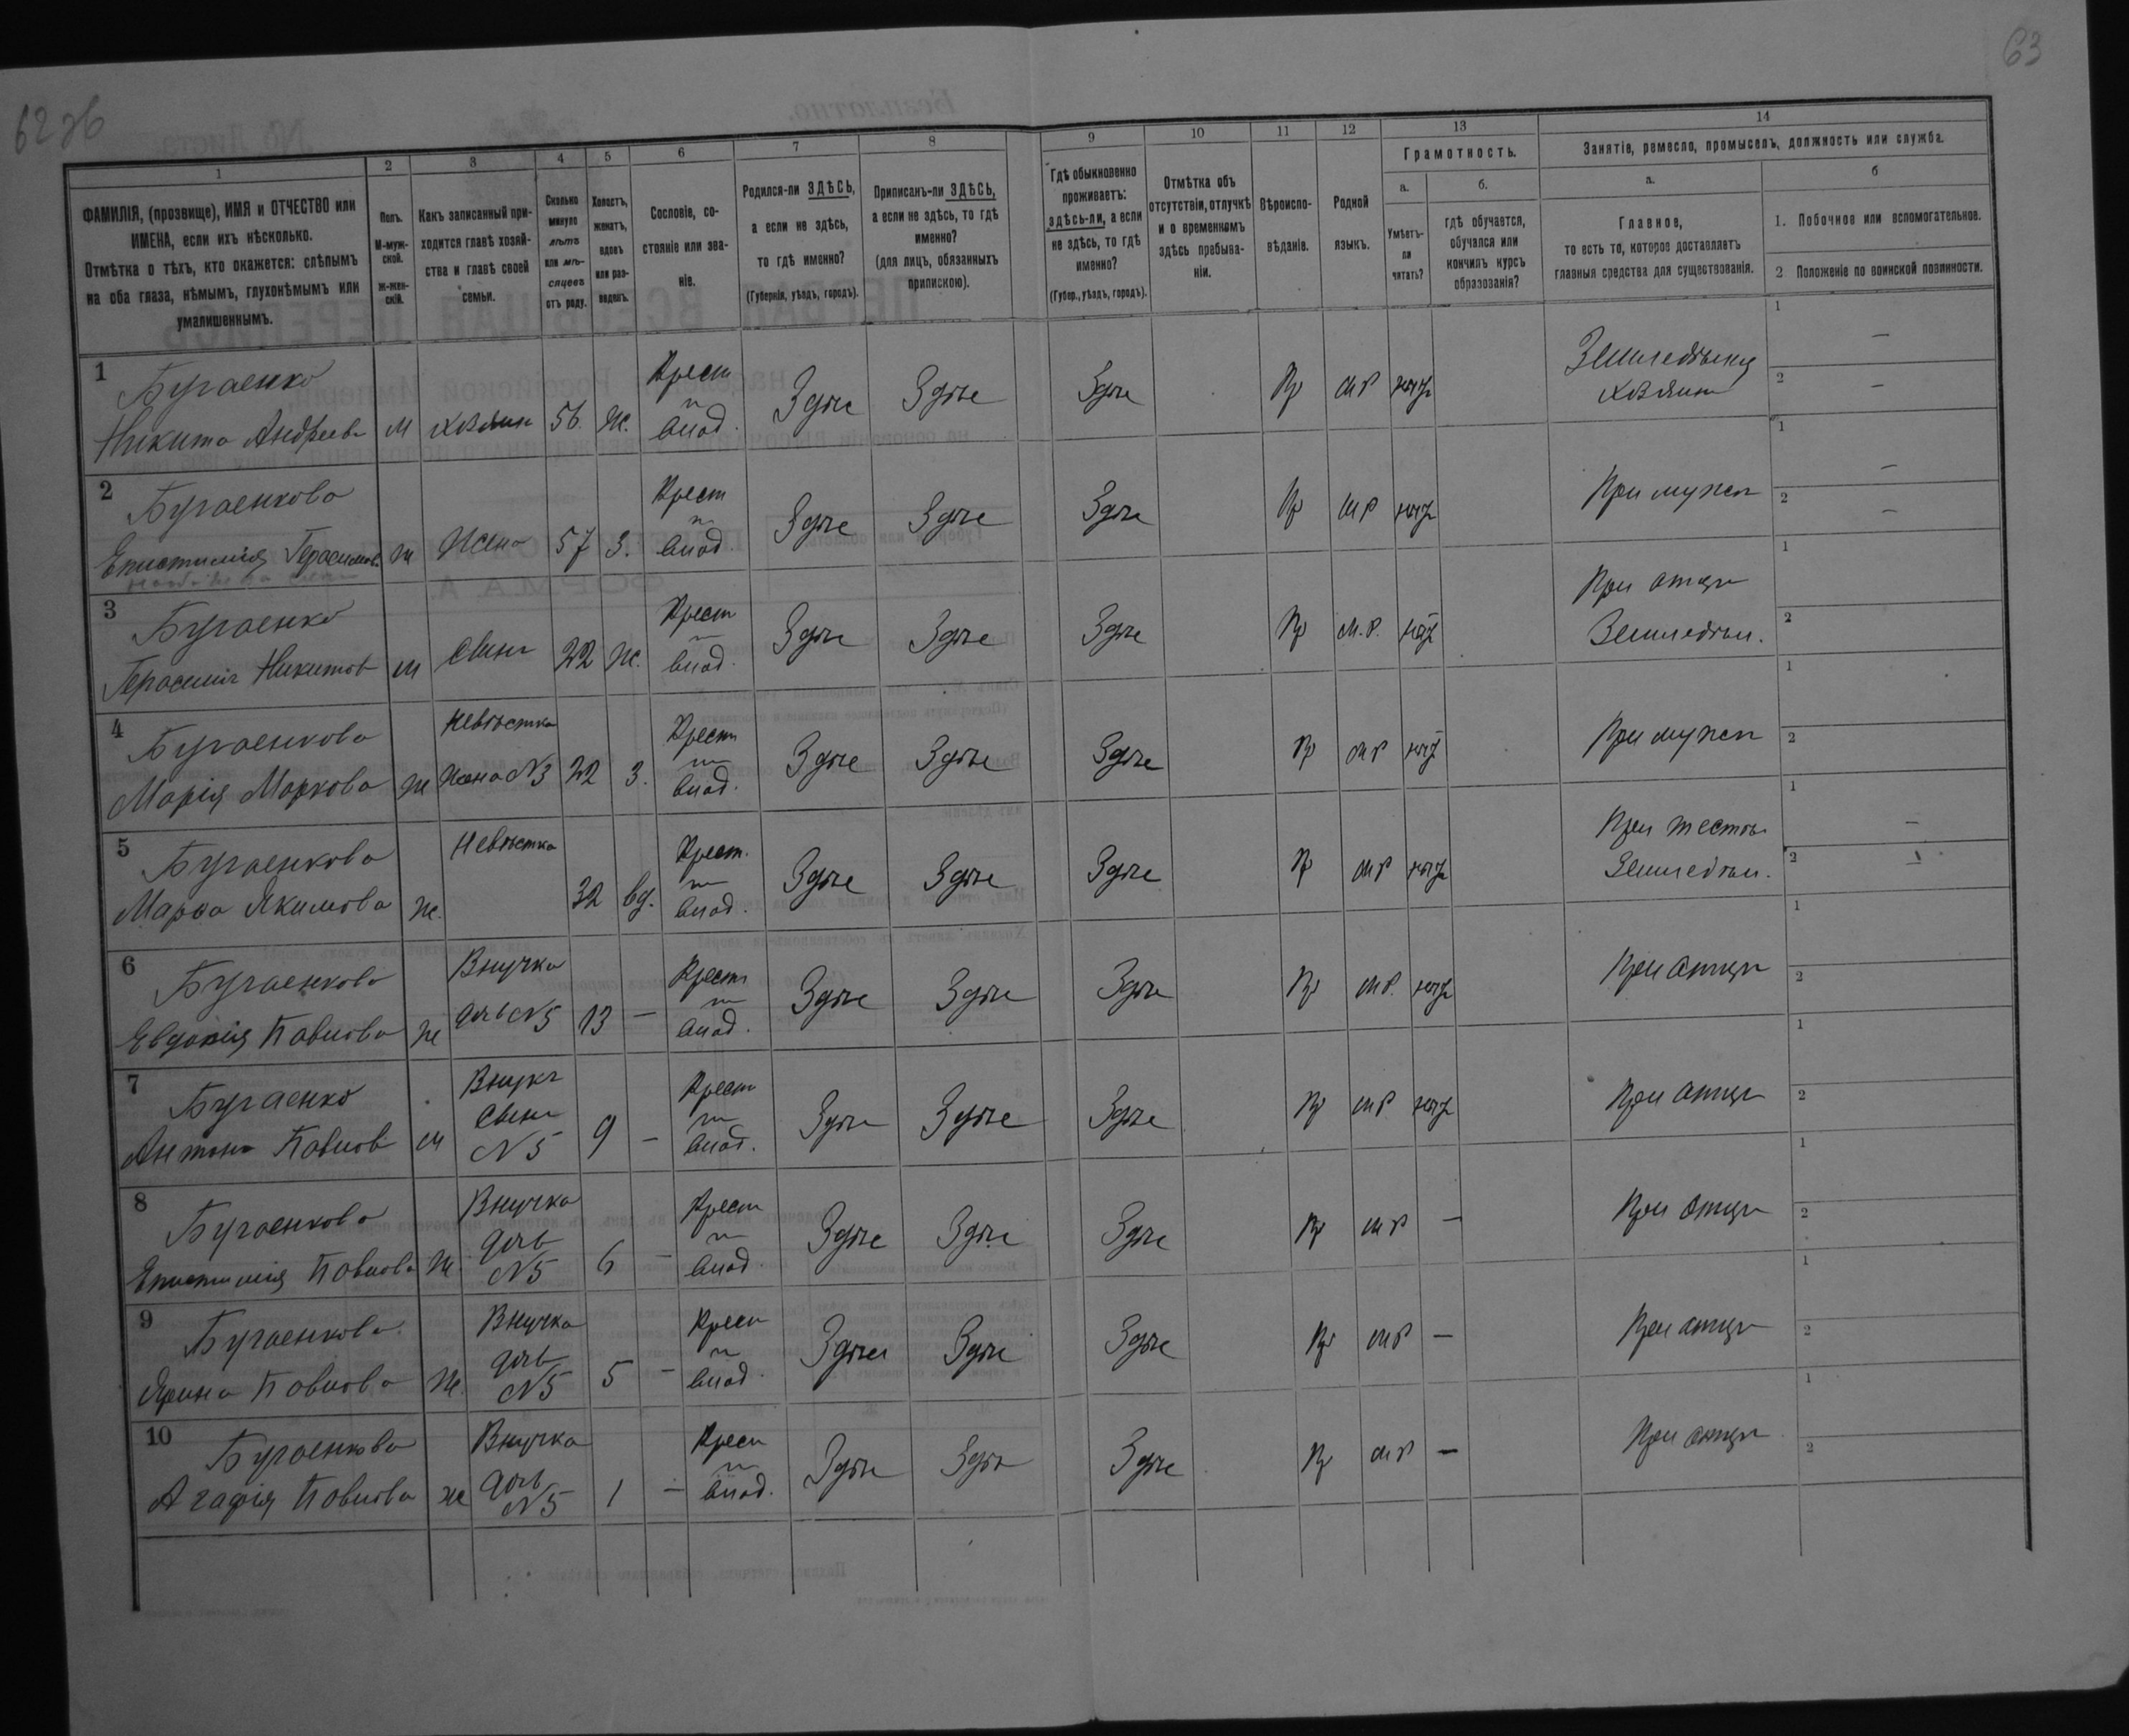 62 об
63
1
2
3
4
5
6
7
8
9
10
11
12
13
14
ФАМИЛІЯ, (прозвище), ИМЯ и ОТЧЕСТВО или
ИМЕНА, если ихъ нѣсколько.
Отмѣтка о тѣхъ, кто окажется: слѣпымъ
на оба глаза, нѣмымъ, глухонѣмымъ или
умалишеннымъ.
Полъ.
М-муж-
ской.
Ж-жен-
скій.
Какъ записанный при-
ходится главѣ хозяй-
ства и главѣ своей
семьи.
Сколько
минуло
лѣтъ
или мѣ-
сяцевъ
отъ роду.
Холостъ,
женатъ,
вдовъ
или раз-
веденъ.
Сословіе, со-
стояніе или зва-
ніе.
Родился-ли ЗДѢСЬ,
а если не здѣсь,
то гдѣ именно?
(Губернія, уѣздъ, городъ).
Приписанъ-ли ЗДѢСЬ,
а если не здѣсь, то гдѣ
именно?
(для лицъ, обязанныхъ
припискою).
Гдѣ обыкновенно
проживаетъ:
здѣсь-ли, а если
не здѣсь, то гдѣ
именно?
(Губер., уѣздъ, городъ).
Отмѣтка объ
отсутствіи, отлучкѣ
и о временномъ
здѣсь пребыва-
ніи.
Вѣроиспо-
вѣданіе.
Родной
языкъ.
Грамотность.
а.
Умѣетъ-
ли
читать?
б.
гдѣ обучается,
обучался или
кончилъ курсъ
образованія?
Занятіе, ремесло, промыселъ, должность или служба.
а.
Главное,
то есть то, которое доставляетъ
главныя средства для существованія.
б
1. Побочное или вспомогательное.
2 Положеніе по воинской повинности.
1 Бугаенко Крест Земледѣлец 1 —
Никита Андреев М хозяин 56. ж. из влад. Здѣсь Здѣсь Здѣсь Пр мр нѣт хозяин 2 —
2 Бугаенкова Крест 1 —
Епистимия Герасимов. ж Жена 57 з. из влад. Здѣсь Здѣсь Здѣсь Пр мр нѣт При мужѣ 2 —
3 Бугаенко Крест При отцѣ 1
Герасим Никитов м Сын 22 ж. из влад. Здѣсь Здѣсь Здѣсь Пр м.р. нѣт Земледѣл. 2
4 Бугаенкова Невѣстка Крест 1
Марія Маркова ж Жена N3 22 з. из влад. Здѣсь Здѣсь Здѣсь Пр мр нѣт При мужѣ 2
5 Бугаенкова Невѣстка Крест. При тестѣ 1 —
Марѳа Якимова ж. 32 вд. из влад. Здѣсь Здѣсь Здѣсь Пр мр нѣт Земледѣл. 2 —
6 Бугаенкова Внучка Крест 1
Евдокія Павлова ж дочь N5 13 — из влад. Здѣсь Здѣсь Здѣсь Пр мр. нѣт При отцѣ 2
7 Бугаенко Внукъ Сын Крест 1
Антон Павлов м N5 9 — из влад. Здѣсь Здѣсь Здѣсь Пр мр нѣт При отцѣ 2
8 Бугаенкова Внучка дочь Крест 1
Епистимия Павлова ж N5 6 — из влад. Здѣсь Здѣсь Здѣсь Пр мр — При отцѣ 2
9 Бугаенкова Внучка дочь Крест 1
Ярина Павлова ж. N5 5 — из влад. Здѣсь Здѣсь Здѣсь Пр мр — При отцѣ 2
10 Бугаенкова Внучка дочь Крест 1
Агафія Павлова ж N5 1 — из влад. Здѣсь Здѣсь Здѣсь Пр мр — При отцѣ 2